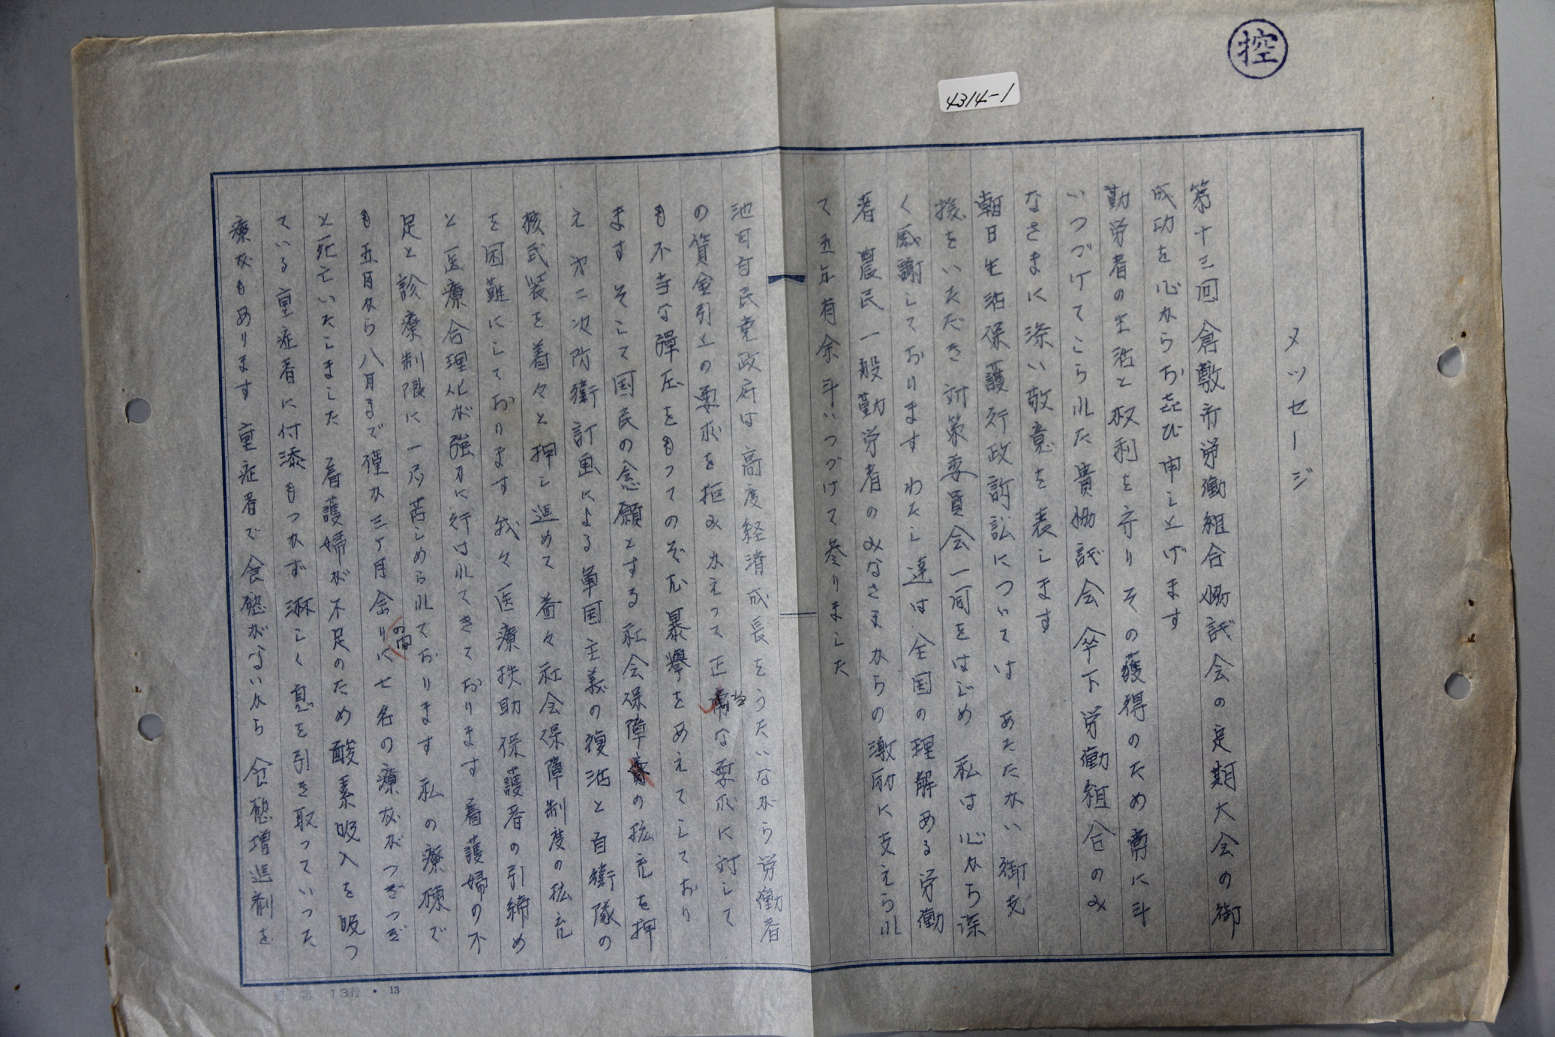 控
4314-1
メッセージ
第十三回倉敷市労働組合協議会の定期大会の御
成功を心からお喜び申し上げます
勤労者の生活と权利を守りその獲得のため常に斗
いつづけてこられた貴協議会傘下労働組合のみ
なさまに深い敬意を表します
朝日生活保護行政訴訟についてはあたたかい御支
援をいただき対策委員会一同をはじめ私は心から深
く感謝しておりますわたし達は全国の理解ある労働
者農民一般勤労者のみなさまからの激励に支えられ
て五年有余斗いつづけて参りました
池田自民党政府は高度経済成長をうたいながら労働者
の賃金引上の要求を拒みかえって正当な要求に対して
も不当な弾圧をもってのぞむ暴挙をあえてしており
ますそして国民の念願とする社会保障の拡充を押
え第二次防衛計画による軍国主義の復活と自衛隊の
核武装を着々と押し進めて益々社会保障制度の拡充
を困難にしております我々医療扶助保護者の引締め
と医療合理化が強力に行はれてきております看護婦の不
足と診療制限に一乃苦しめられております私の療棟で
も五月から八月まで僅か三ヶ月余りの間に七名の療友がつぎつぎ
と死亡いたしました看護婦が不足のため酸素吸入を吸っ
ている重症者に付添もつかず淋しく息を引き取っていった
療友もあります重症者で食慾がないから食慾増進剤を
13